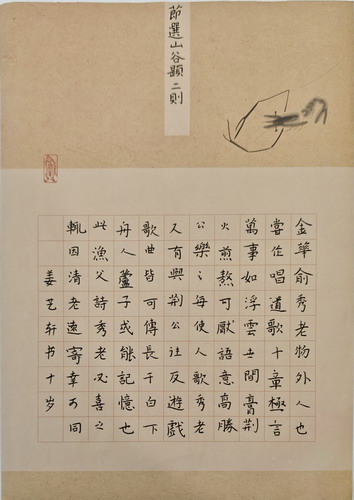 節選山谷題二則
金華俞秀老物外人也
嘗作唱道歌十章極言
萬事如浮雲世間膏荆
火煎熬可厭語意高勝
公樂之每使人歌秀老
又有與荆公往反遊戲
歌曲皆可傳長干白下
舟人蘆子或能記憶也
此漁父詩秀老必喜之
輒因清老遠寄幸可同
姜艺轩书十岁